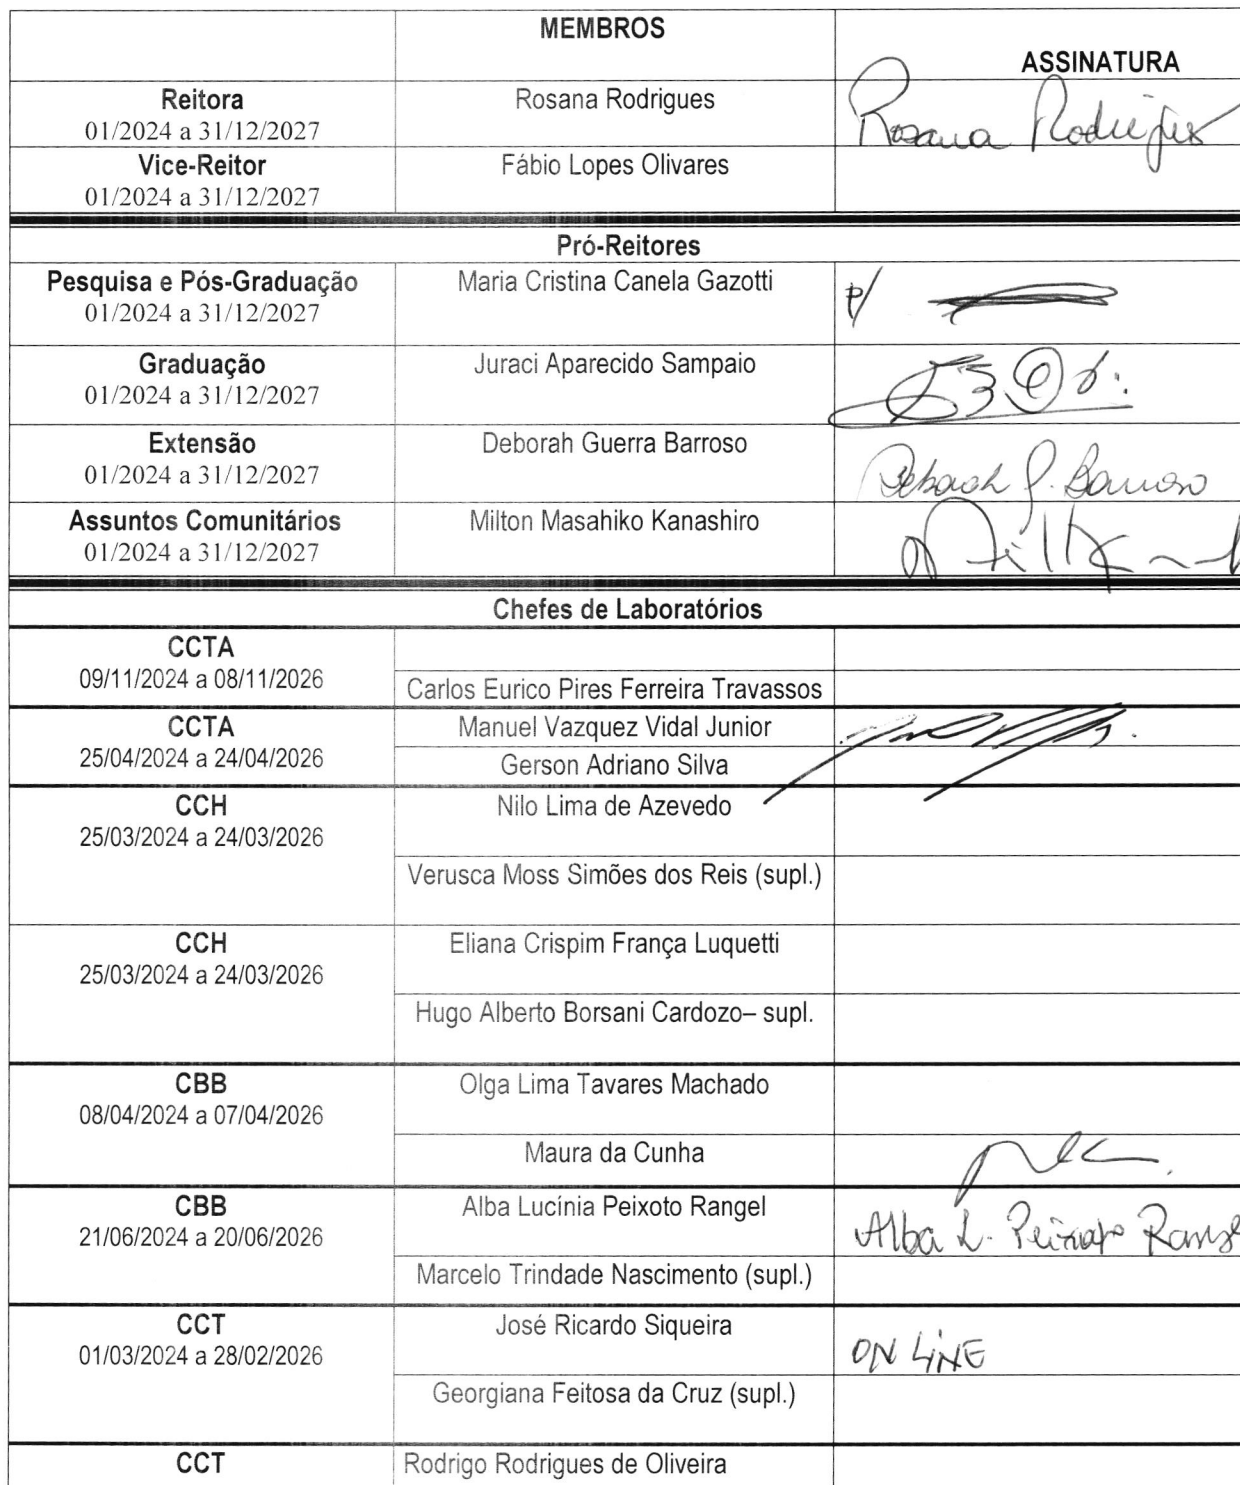 MEMBROS
ASSINATURA
Reitora
01/2024 a 31/12/2027
Rosana Rodrigues
Rosana Rodrigues
Vice-Reitor
01/2024 a 31/12/2027
Fábio Lopes Olivares
Pró-Reitores
Pesquisa e Pós-Graduação
01/2024 a 31/12/2027
Maria Cristina Canela Gazotti
P/
Graduação
01/2024 a 31/12/2027
Juraci Aparecido Sampaio
Extensão
01/2024 a 31/12/2027
Deborah Guerra Barroso
Deborah G. Barroso
Assuntos Comunitários
01/2024 a 31/12/2027
Milton Masahiko Kanashiro
Chefes de Laboratórios
CCTA
09/11/2024 a 08/11/2026
Carlos Eurico Pires Ferreira Travassos
CCTA
25/04/2024 a 24/04/2026
Manuel Vazquez Vidal Junior
Gerson Adriano Silva
CCH
25/03/2024 a 24/03/2026
Nilo Lima de Azevedo
Verusca Moss Simões dos Reis (supl.)
CCH
25/03/2024 a 24/03/2026
Eliana Crispim França Luquetti
Hugo Alberto Borsani Cardozo– supl.
CBB
08/04/2024 a 07/04/2026
Olga Lima Tavares Machado
Maura da Cunha
CBB
21/06/2024 a 20/06/2026
Alba Lucínia Peixoto Rangel
Alba L. Peixoto Range
Marcelo Trindade Nascimento (supl.)
CCT
01/03/2024 a 28/02/2026
José Ricardo Siqueira
ON LINE
Georgiana Feitosa da Cruz (supl.)
CCT
Rodrigo Rodrigues de Oliveira